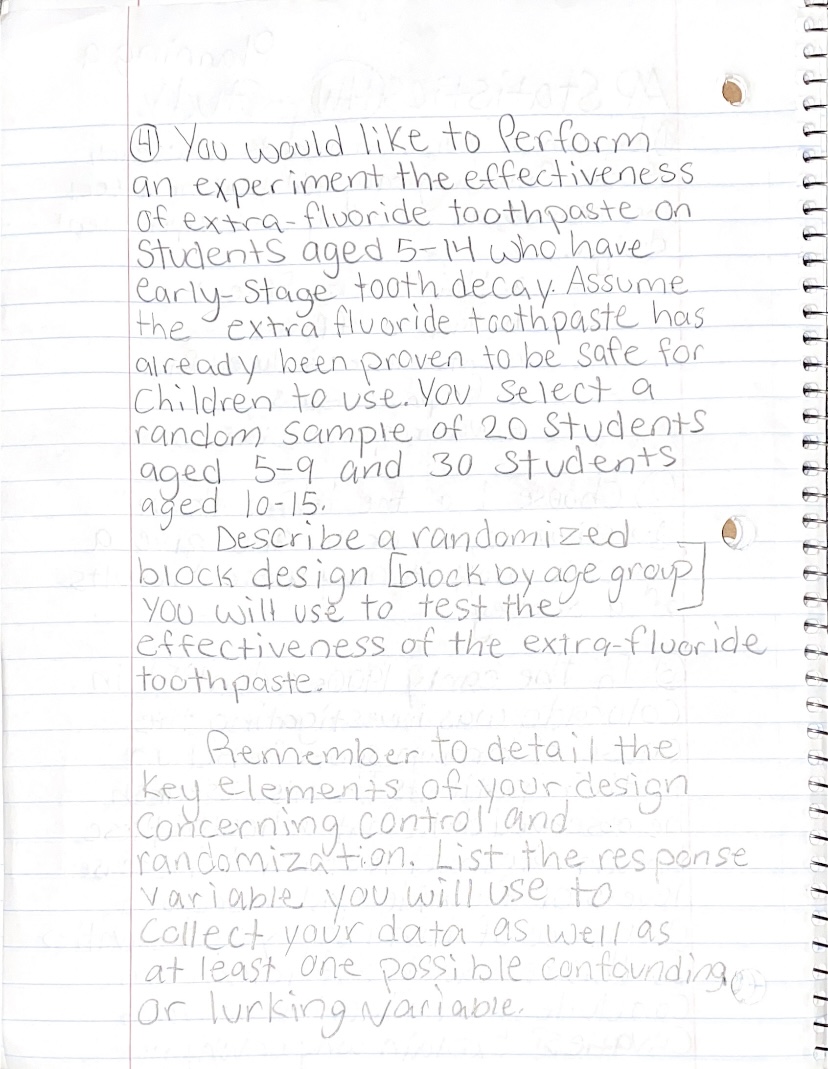 ④ You would like to Perform
an experiment the effectiveness
of extra-fluoride toothpaste on
Students aged 5-14 who have
early-Stage tooth decay. Assume
the extra fluoride toothpaste has
already been proven to be safe for
Children to use. You Select a
random sample of 20 Students
aged 5-9 and 30 Students
aged 10-15.
Describe a randomized
block design [block by age group]
you will use to test the
effectiveness of the extra-fluoride
toothpaste.
Remember to detail the
Key elements of your design
Concerning control and
randomization. List the response
variable you will use to
Collect your data as well as
at least one possible confounding
or lurking variable.